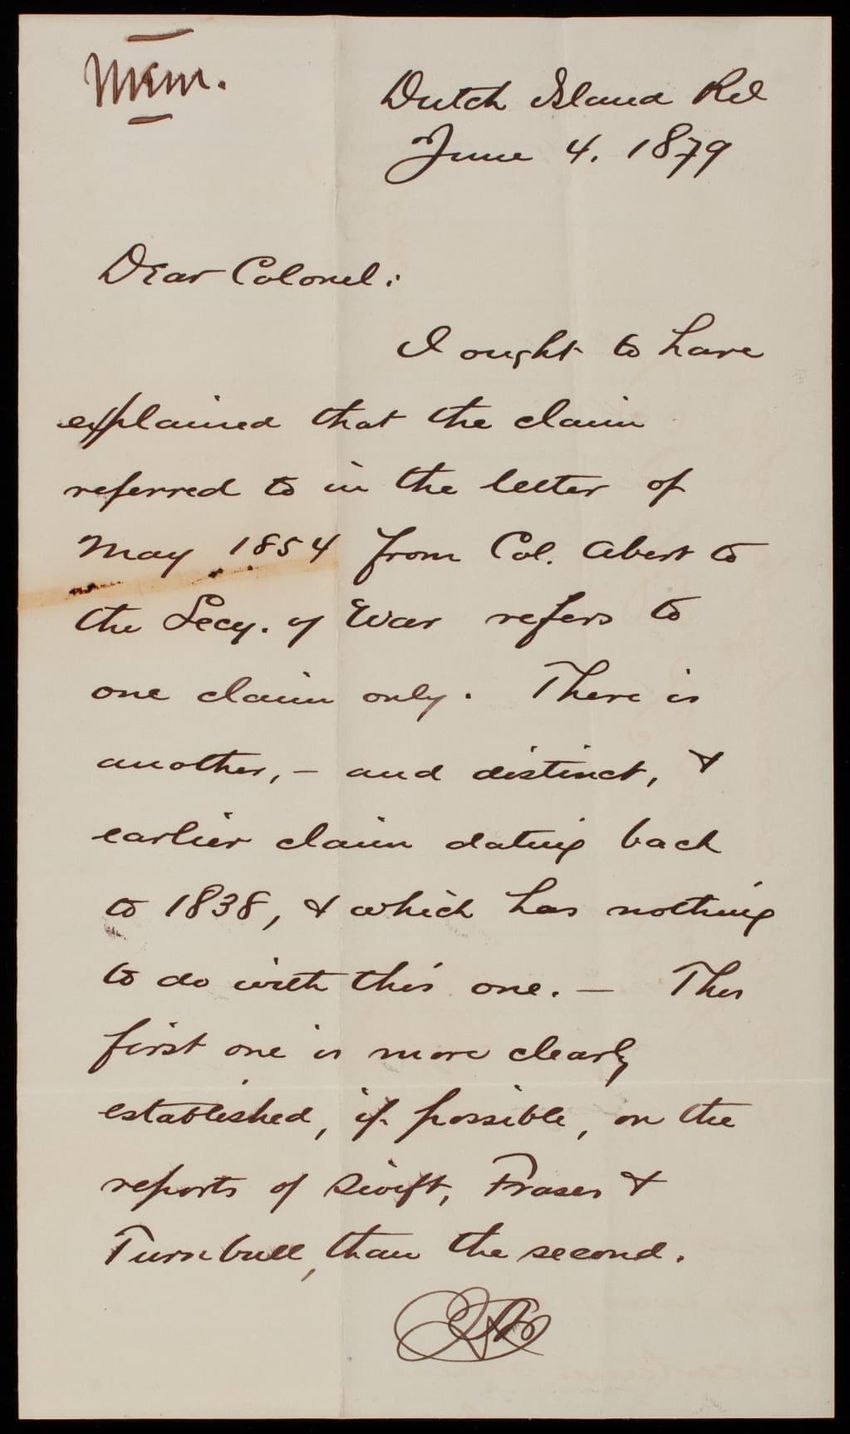 Mem.
Dutch Island Rd
June 4. 1879
Dear Colonel:
I ought to have
explained that the claim
referred to in the letter of
May 1854 from Col. Abert to
the Secy. of War refers to
one claim only. There is
another, - and distinct, &
earlier claim dating back
to 1838, & which has nothing
to do with this one. — This
first one is more clearly
established, if possible, on the
reports of Swift, Fraser &
Turnbull, than the second.